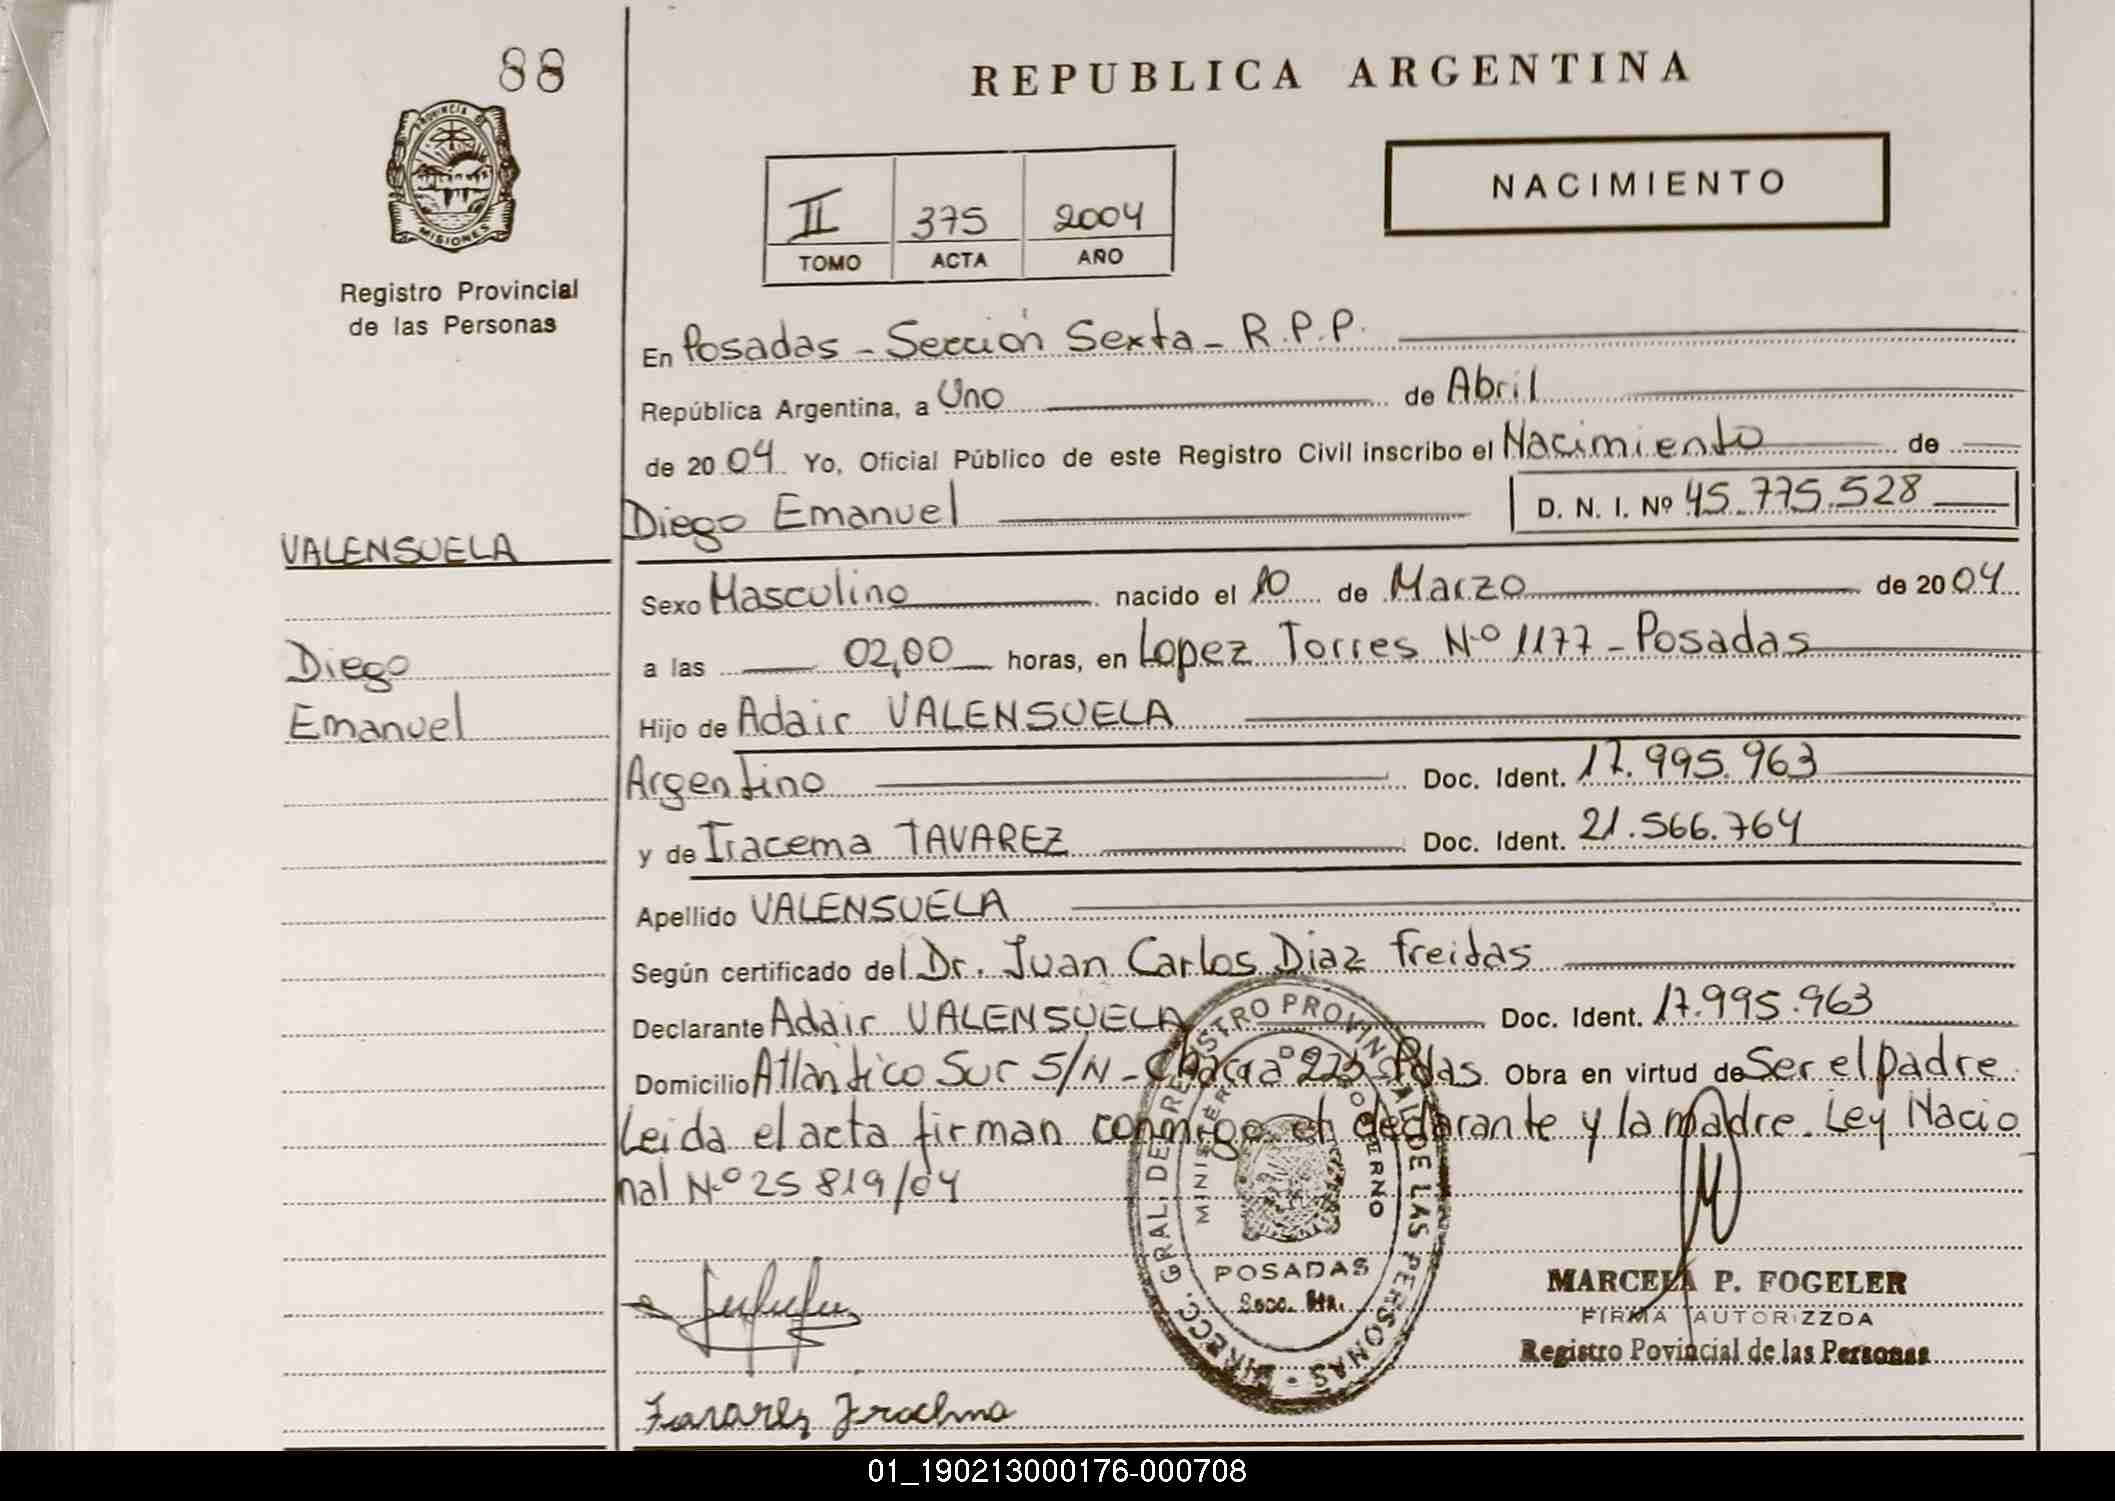 88
REPUBLICA ARGENTINA
PROVINCIA DE
MISIONES
Registro Provincial
de las Personas
NACIMIENTO
II 375 2004
TOMO ACTA AÑO
En Posadas - Sección Sexta - R.P.P.
República Argentina, a Uno de Abril
de 2004 Yo, Oficial Público de este Registro Civil inscribo el Nacimiento de
Diego Emanuel D. N. I. Nº 45.775.528
VALENSUELA
Sexo Masculino nacido el 10 de Marzo de 2004
Diego
a las 02,00 horas, en Lopez Torres Nº 1177 - Posadas
Emanuel
Hijo de Adair VALENSUELA
Argentino Doc. Ident. 17.995.963
y de Iracema TAVAREZ Doc. Ident. 21.566.764
Apellido VALENSUELA
Según certificado del Dr. Juan Carlos Diaz Freidas
Declarante Adair VALENSUELA Doc. Ident. 17.995.963
Domicilio Atlántico Sur S/N - Chacra 223 - Pdas. Obra en virtud de Ser el padre
Leida el acta firman conmigo el declarante y la madre. Ley Nacio
nal Nº 25 819/04
DIRECC. GRAL. DE REGISTRO PROVINCIAL DE LAS PERSONAS
MINISTERIO DE GOBIERNO
POSADAS
Secc. 6ta.
MARCELA P. FOGELER
FIRMA AUTORIZZDA
Registro Povincial de las Personas
Tavarez Iracema
01_190213000176-000708